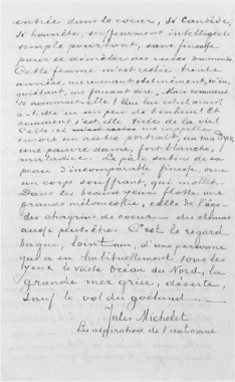 entrée dans le coeur, si candide,
si honnête, si finement intelligente
simple pourtant, sans finesse
pour se démêler des ruses
Cette femme m'est restée trente
années, me revenant obstinément,
quiétant, me faisant dire, Mais comment
se nommait-elle? Que lui est-il arrivé?
a-t-elle eu un peu de bonheur? Et
comment s'est-elle tirée de la vie?
Celle-ci me rappelle
encore un autre portrait, un Van Dyck,
une pauvre dame, fort blanche,
maladive. Le pâle satin de sa
peau d'incomparable finesse, orne
un corps souffrant, qui mollit.
Dans les beaux yeux flotte une
grande mélancolie, celle de l'âge
des chagrins de coeur du climat
aussi peut-être. C'est le regard
vague, lointain, d'une personne
qui a eu habituellement sous les
yeux le vaste Océan du Nord, la
grande mer grise, déserte,
sauf le vol du goéland
Jules Michelet
Les aspirations de l'automne.